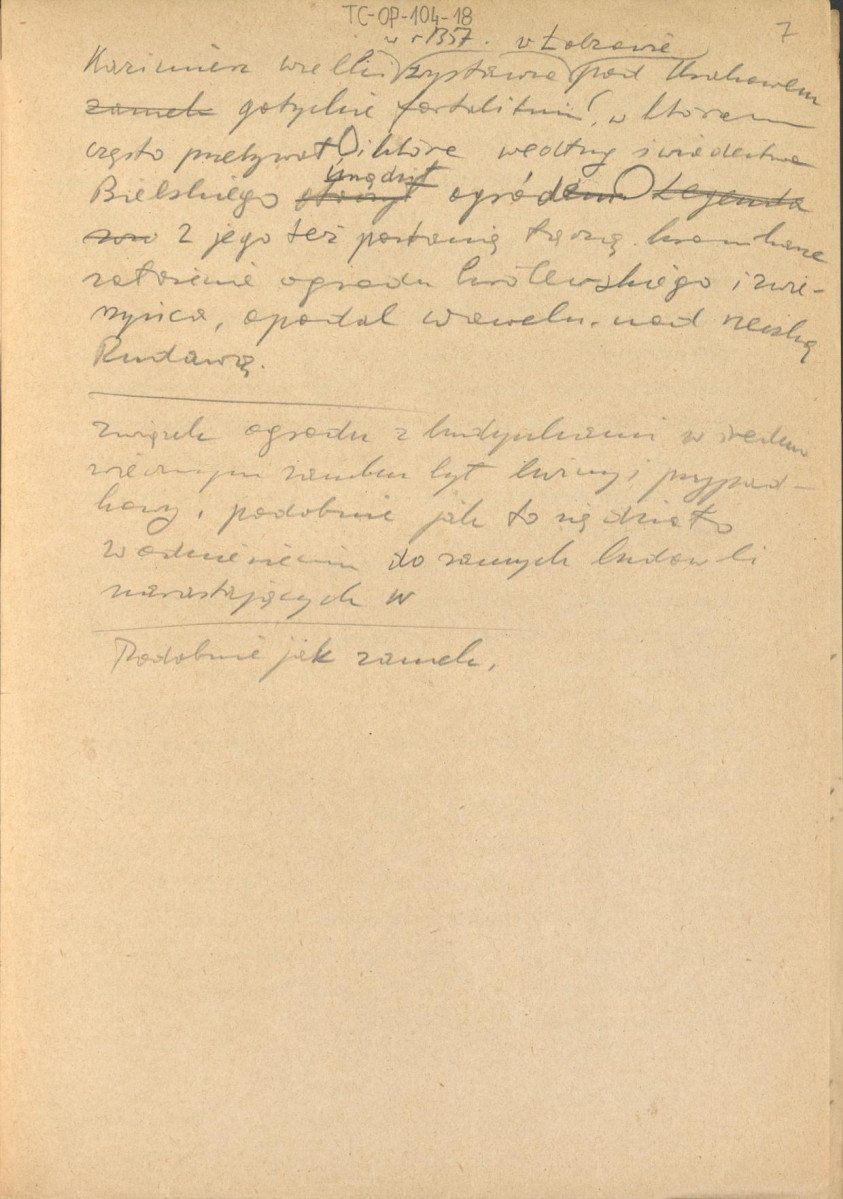 TC-OP-104-18
7
w r 1357. w Łobzowie
Kazimierz Wielki wystawia pod Krakowem
zamek gotyckie fortalitium, w którem
często przebywał i które według świadectwa
urządził
Bielskiego otoczył ogrodem Legenda
z jego też postacią łączą kronikarze
założenie ogrodu królewskiego i zwie-
rzyńca, opodal Wawelu, nad rzeczką
Rudawą.
Związek ogrodu z budynkami w średnio
wiecznym zamku był luźny i przypad-
kowy, podobnie jak to się działo
w odniesieniu do samych budowli
narastających w
Podobnie jak zamek,